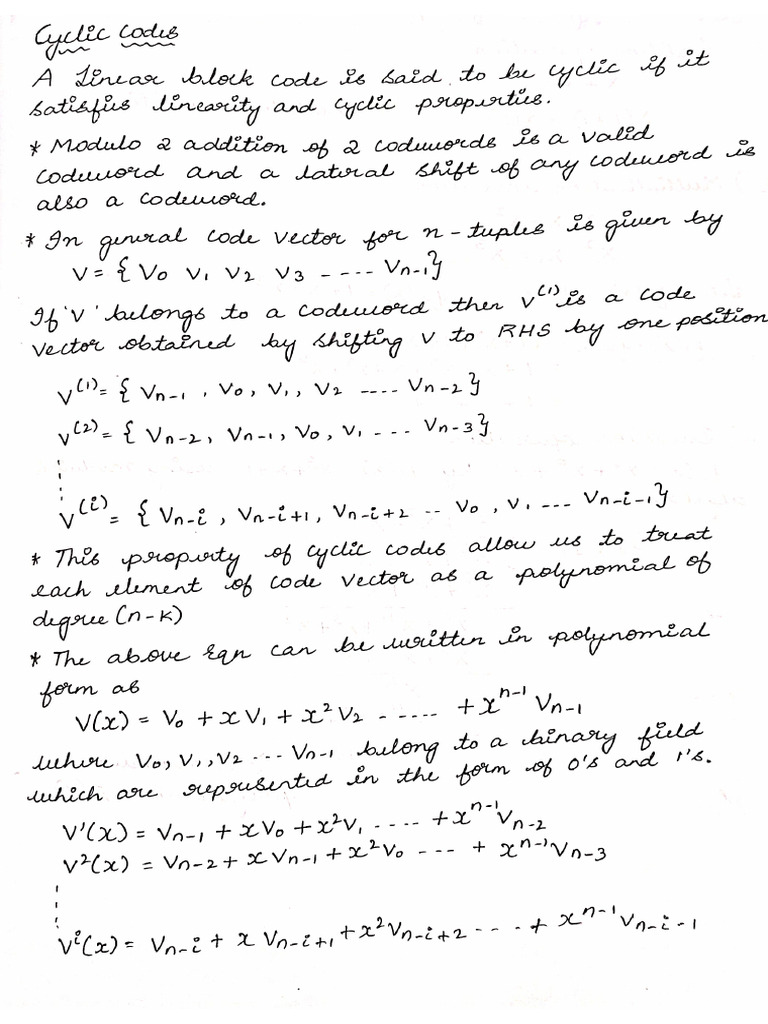 Cyclic codes
A Linear block code is said to be cyclic if it
satisfies linearity and cyclic properties.
* Modulo 2 addition of 2 codewords is a valid
codeword and a lateral shift of any codeword is
also a codeword.
* In general code vector for n-tuples is given by
V = { V0 V1 V2 V3 ----- Vn-1}
If 'V' belongs to a codeword then V^(1) is a code
vector obtained by shifting V to RHS by one position
V^(1) = { Vn-1 , V0, V1, V2 ..... Vn-2 }
V^(2) = { Vn-2, Vn-1, V0, V1 - ... Vn-3 }
V^(i) = { Vn-i , Vn-i+1, Vn-i+2 -- V0 , V1 --- Vn-i-1}
* This property of cyclic codes allow us to treat
each element of code vector as a polynomial of
degree (n-k)
* The above Eqn can be written in polynomial
form as
V(x) = V0 + xV1 + x^2 V2 - ..... + x^n-1 Vn-1
where V0, V1, V2 --- Vn-1 belong to a binary field
which are represented in the form of 0's and 1's.
V'(x) = Vn-1 + xV0 + x^2 V1 ..... + x^n-1 Vn-2
V^2(x) = Vn-2 + xVn-1 + x^2 V0 --- + x^n-1 Vn-3
V^i(x) = Vn-i + x Vn-i+1 + x^2 Vn-i+2 --- + x^n-1 Vn-i-1